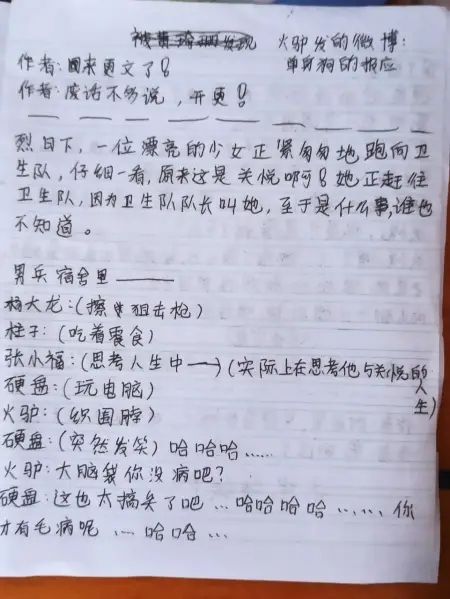 火驴发的微博：
作者：回来更文了！
单身狗的报应
作者：废话不多说，开更！
烈日下，一位漂亮的少女正紧匆匆地跑向卫
生队，仔细一看，原来这是关悦啊！她正赶往
卫生队，因为卫生队队长叫她，至于是什么事，谁也
不知道。
男兵宿舍里——
杨大龙：（擦狙击枪）
柱子：（吃着零食）
张小福：（思考人生中一）（实际上在思考他与关悦的人生）
硬盘：（玩电脑）
火驴：（织围脖）
硬盘：（突然发笑）哈哈哈……
火驴：大脑袋你没病吧？
硬盘：这也太搞笑了吧…哈哈哈哈……，你
才有毛病呢…哈哈…